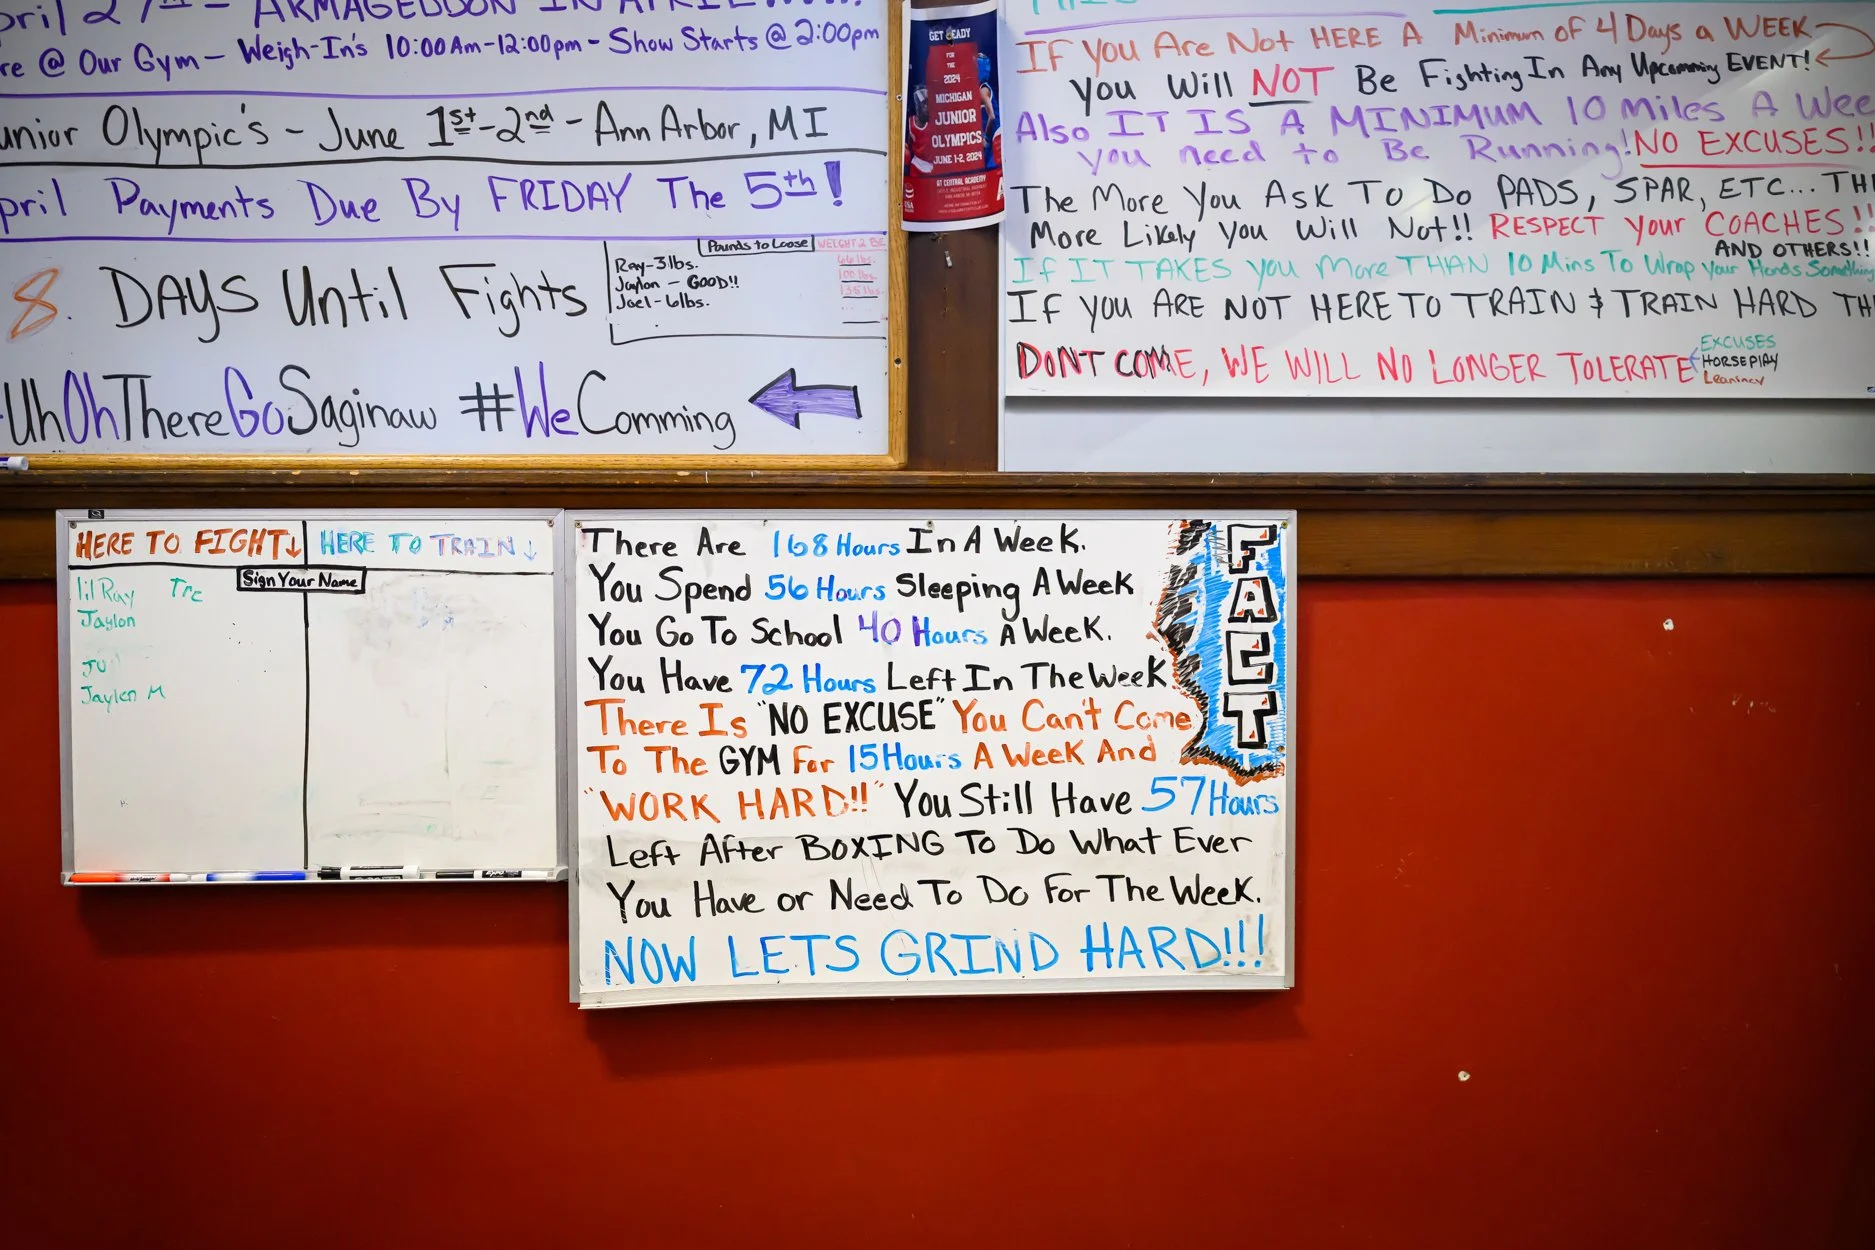 pril 27th - ARMAGEDDON IN APRIL
re @ Our Gym - Weigh-In's 10:00Am-12:00pm - Show Starts @ 2:00pm
unior Olympic's - June 1st-2nd - Ann Arbor, MI
pril Payments Due By FRIDAY The 5th!
8. DAYS Until Fights
Pounds to Loose WEIGHT 2 BE
Ray-3lbs. 66lbs.
Jaylon - GOOD!! 100lbs.
Joel-6lbs. 135lbs.
#UhOhThereGoSaginaw #WeComming
GET READY
FOR
THE
2024
MICHIGAN
JUNIOR
OLYMPICS
JUNE 1-2, 2024
AT CENTRAL ACADEMY
IF You Are Not HERE A Minimum OF 4 Days a WEEK
You Will NOT Be Fighting In Any Upcomming EVENT!
Also IT IS A MINIMUM 10 Miles A Wee
you need to Be Running! NO EXCUSES!!
The More You Ask To Do PADS, SPAR, ETC... TH
More Likely You Will Not!! RESPECT Your COACHES!!
AND OTHERS!!
If IT TAKES you More THAN 10 Mins To Wrap your Hands Somethin
IF YOU ARE NOT HERE TO TRAIN & TRAIN HARD TH
DON'T COME, WE WILL NO LONGER TOLERATE
EXCUSES
HORSEPLAY
HERE TO FIGHT↓ HERE TO TRAIN ↓
Sign Your Name
lil Ray Tre
Jaylon
JU
Jaylen M
There Are 168 Hours In A Week.
You Spend 56 Hours Sleeping A Week
You Go To School 40 Hours A Week.
You Have 72 Hours Left In The Week
There Is "NO EXCUSE" You Can't Come
To The GYM For 15 Hours A Week And
"WORK HARD!!" You Still Have 57 Hours
Left After BOXING To Do What Ever
You Have or Need To Do For The Week.
NOW LETS GRIND HARD!!!
FACT